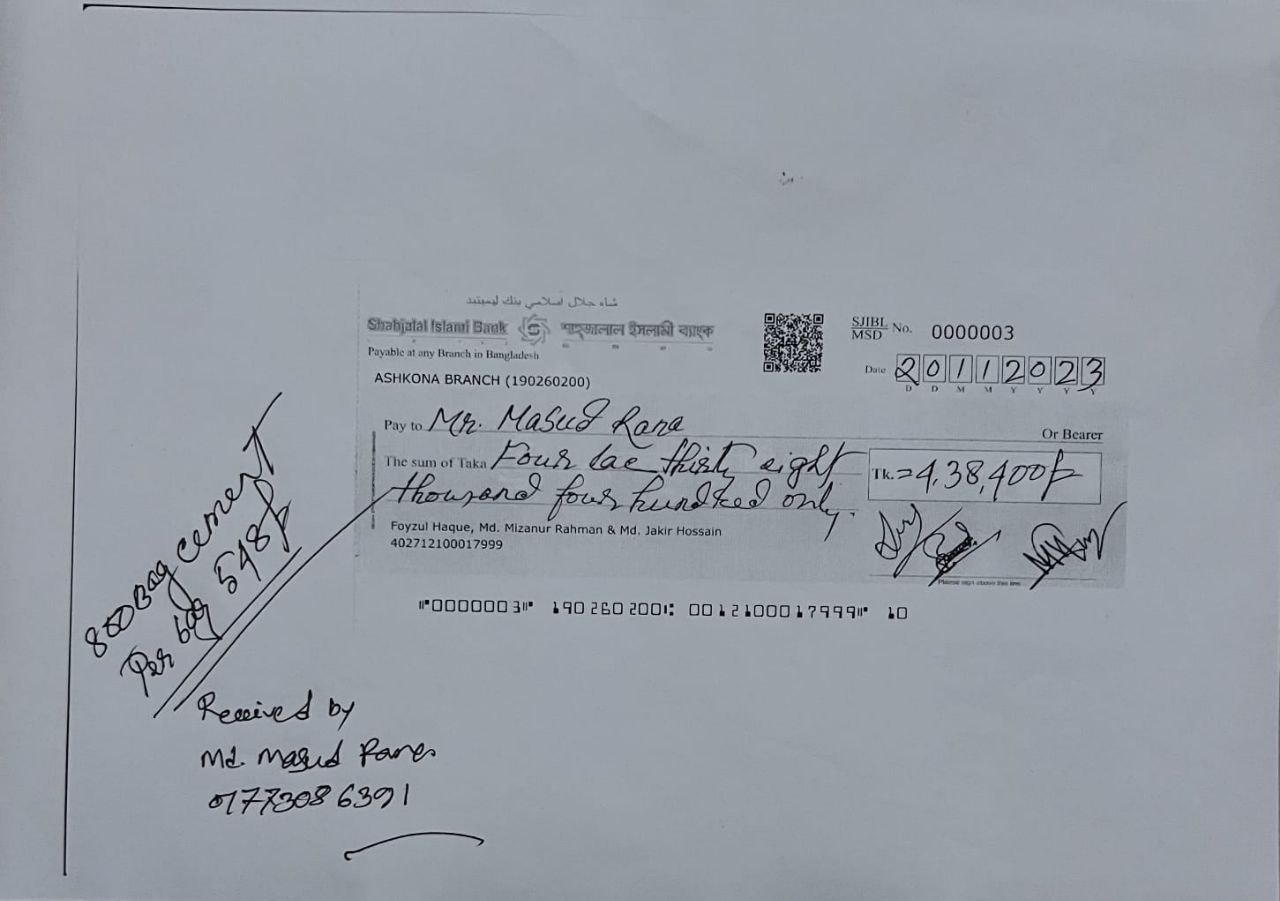 شاه جلال اسلامي بنك ليميتيد
Shahjalal Islami Bank শাহ্জালাল ইসলামী ব্যাংক
Payable at any Branch in Bangladesh
ASHKONA BRANCH (190260200)
SJIBL
MSD No. 0000003
Date 20112023
D D M M Y Y Y Y
Pay to Mr. Masud Rana
Or Bearer
The sum of Taka Four lac thirty eight
thousand four hundred only.
Tk. =4,38,400/-
Foyzul Haque, Md. Mizanur Rahman & Md. Jakir Hossain
402712100017999
Please sign above this line
⑈0000003⑈ 190260200⑆ 0012100017999⑈ 10
800 Bag cement
Per bag 548/-
Received by
Md. Masud Rana
01773086391